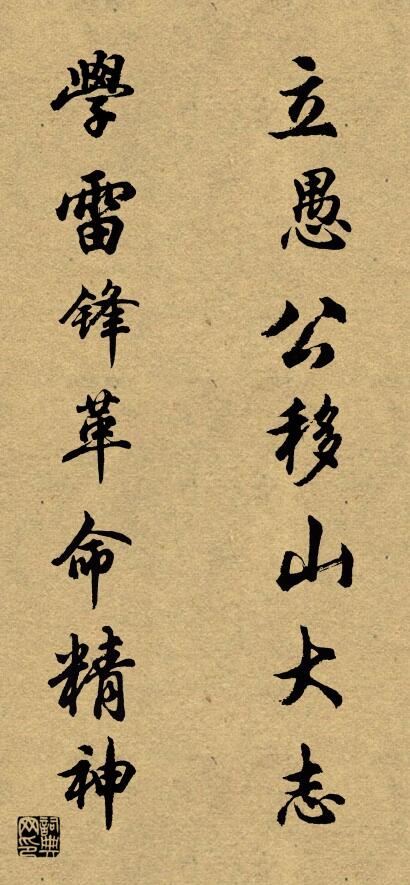 立愚公移山大志
學雷锋革命精神
詞典网印